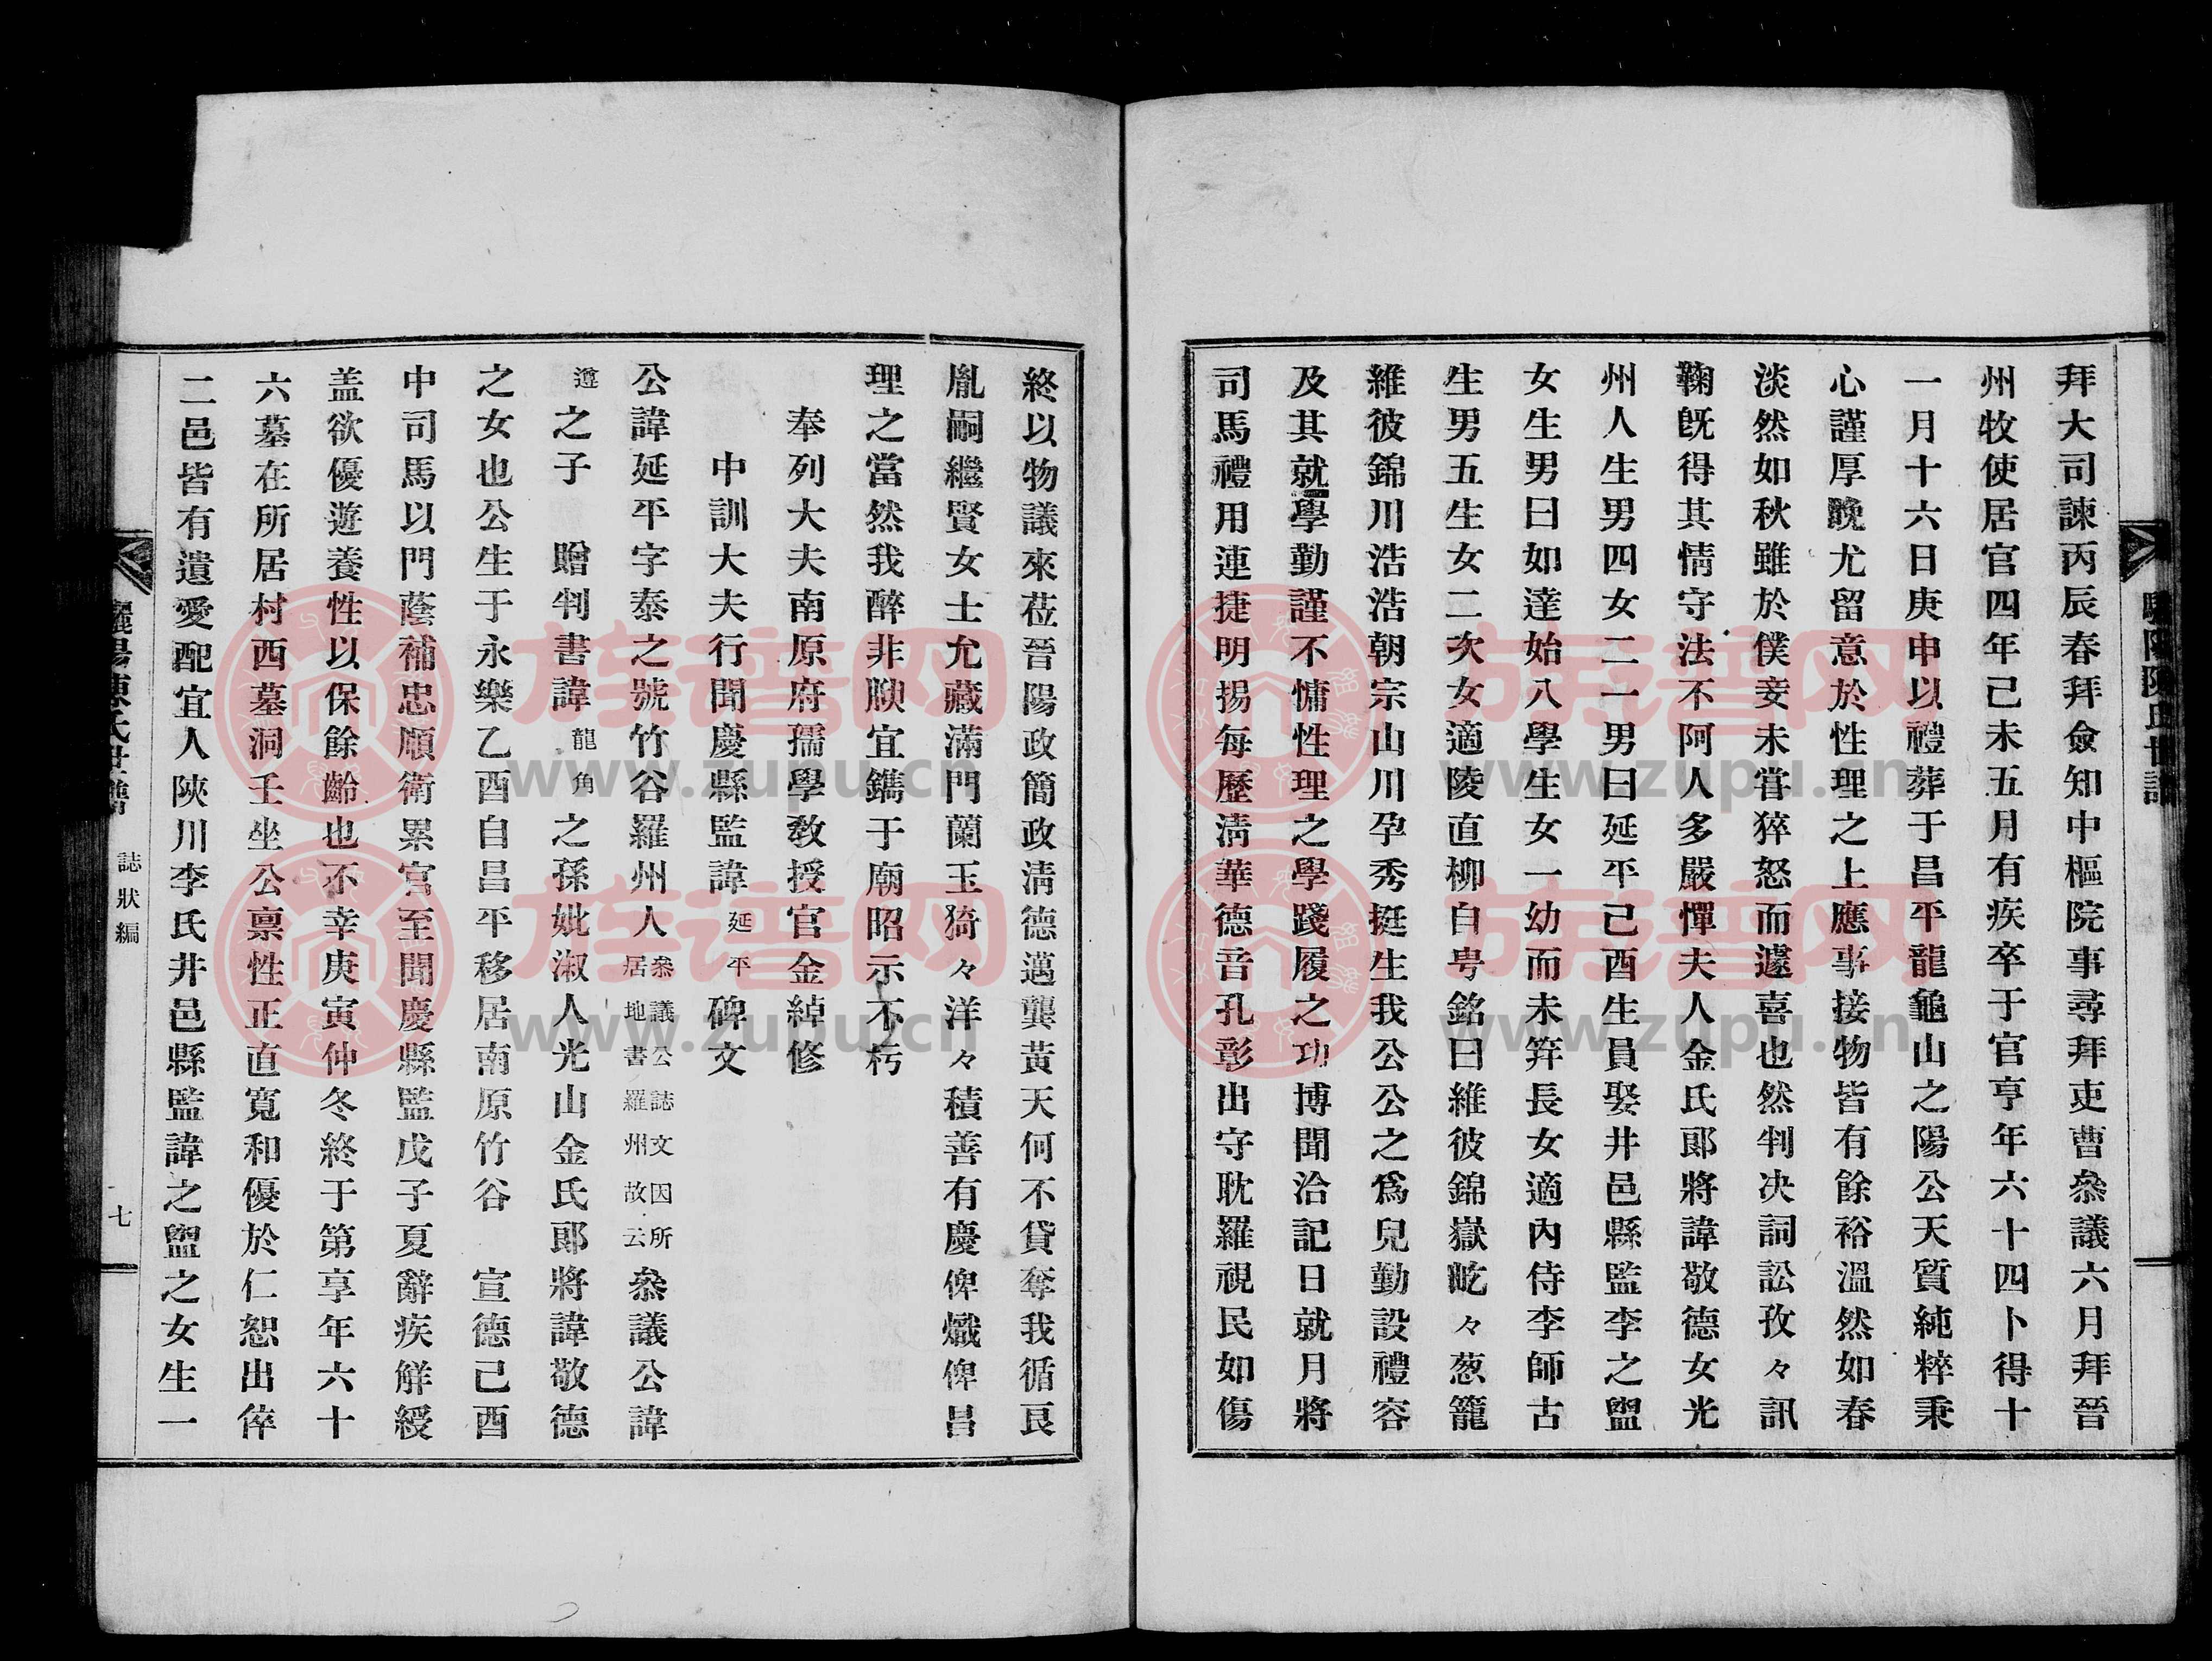 拜大司諫丙辰春拜僉知中樞院事尋拜吏曹叅議六月拜晉
州牧使居官四年己未五月有疾卒于官亨年六十四卜得十
一月十六日庚申以禮葬于昌平龍龜山之陽公天質純粹秉
心謹厚晩尤留意於性理之上應事接物皆有餘裕溫然如春
淡然如秋雖於僕妾未甞猝怒而遽喜也然判决詞訟孜々訊
鞠旣得其情守法不阿人多嚴憚夫人金氏郞將諱敬德女光
州人生男四女二一男曰延平己酉生員娶井邑縣監李之盥
女生男曰如達始八學生女一幼而未笄長女適內侍李師古
生男五生女二次女適陵直柳自甹銘曰維彼錦嶽屹々葱籠
維彼錦川浩浩朝宗山川孕秀挺生我公公之爲兒勤設禮容
及其就學勤謹不慵性理之學踐履之功博聞洽記日就月將
司馬禮用連捷明揚每歷淸華德音孔彰出守耽羅視民如傷
終以物議來莅晉陽政簡政淸德邁龔黃天何不貸奪我循良
胤嗣繼賢女士允藏滿門蘭玉猗々洋々積善有慶俾熾俾昌
理之當然我醉非腴宜鐫于廟昭示不朽
奉列大夫南原府孺學敎授官金綽修
中訓大夫行聞慶縣監諱延平碑文
公諱延平字泰之號竹谷羅州人叅議公誌文因所居地書羅州故云叅議公諱
遵之子 贈判書諱龍角之孫妣淑人光山金氏郞將諱敬德
之女也公生于永樂乙酉自昌平移居南原竹谷 宣德己酉
中司馬以門蔭補忠順衛累官至聞慶縣監戊子夏辭疾觧綬
盖欲優遊養性以保餘齡也不幸庚寅仲冬終于第享年六十
六墓在所居村西墓洞壬坐公禀性正直寬和優於仁恕出倅
二邑皆有遺愛配宜人陜川李氏井邑縣監諱之盥之女生一
誌狀編
七
族谱网
www.zupu.cn
族谱网
www.zupu.cn
族谱网
www.zupu.cn
族谱网
www.zupu.cn